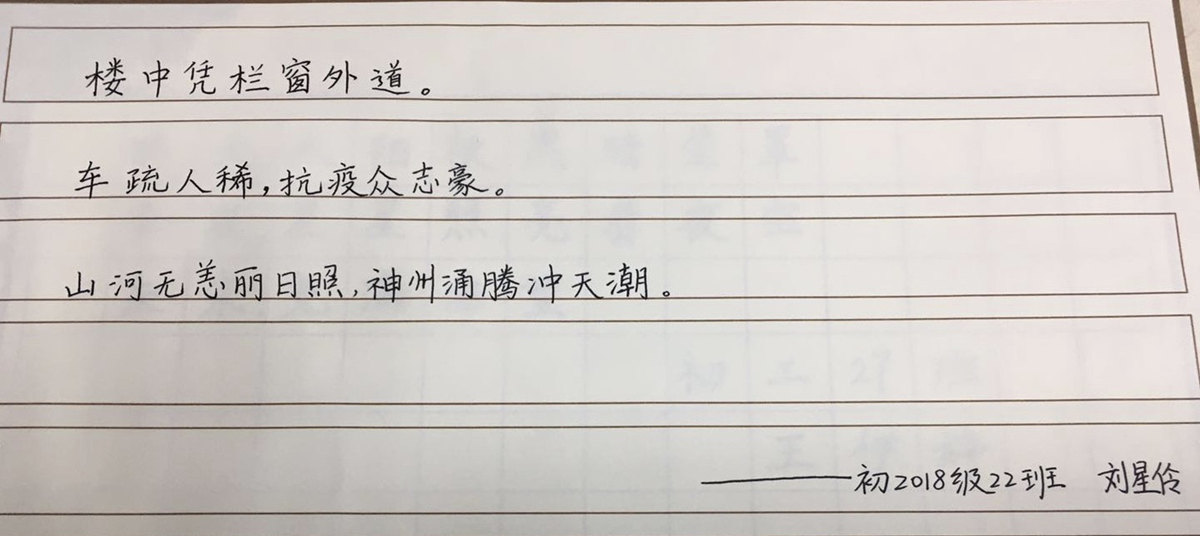 楼中凭栏窗外道。
车疏人稀,抗疫众志豪。
山河无恙丽日照,神州涌腾冲天潮。
——初2018级22班 刘星伶